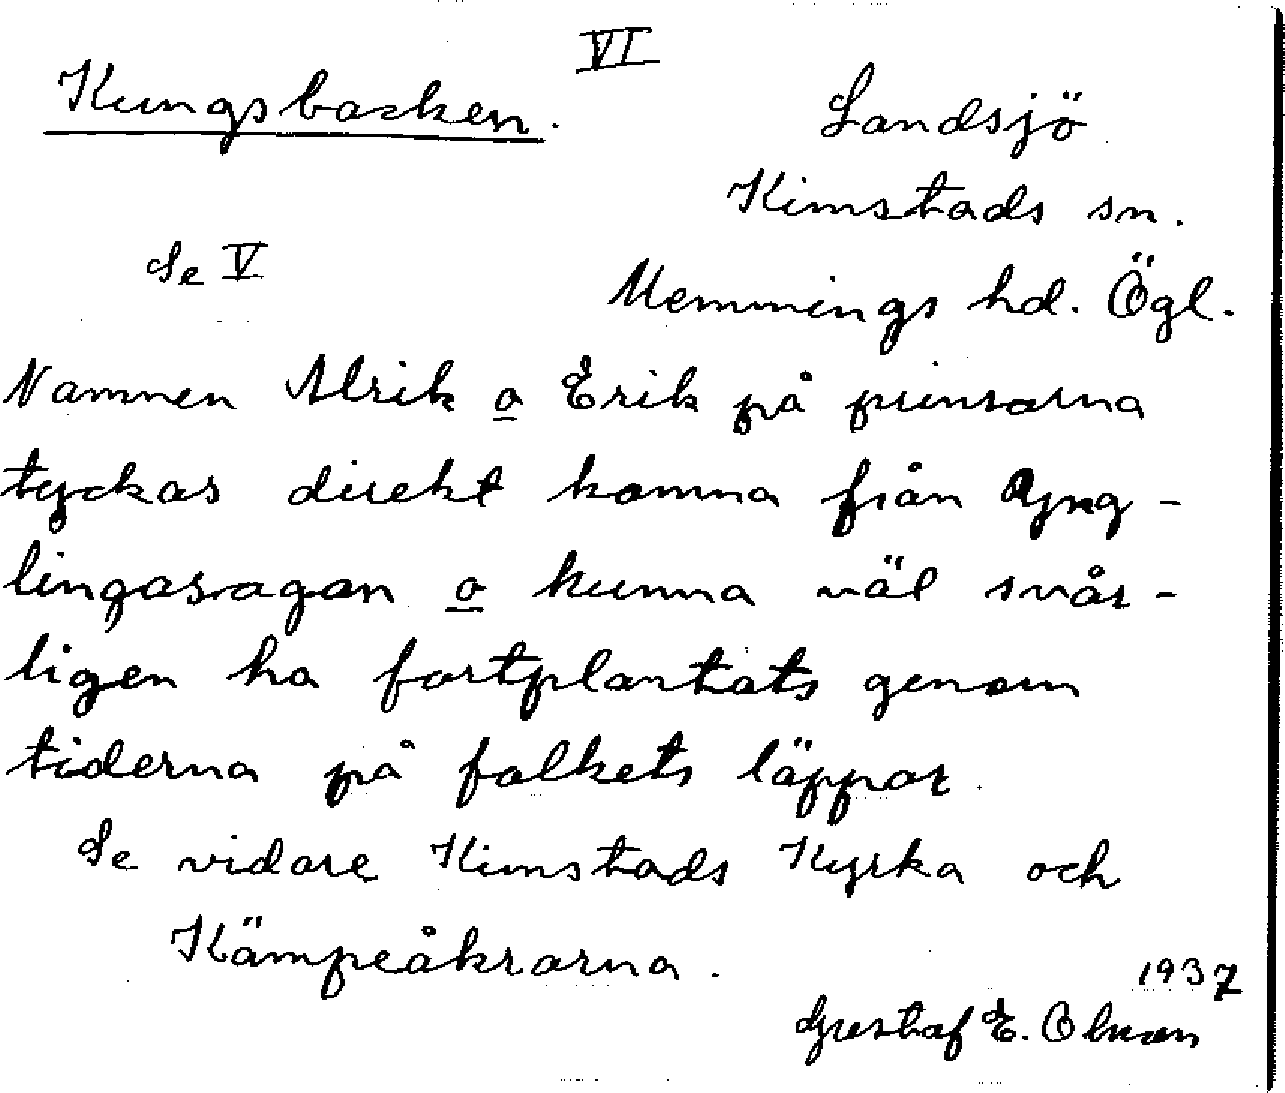 VI
Kungsbacken.
Landsjö
Kimstads sn.
Se V
Memmings hd. Ögl.
Namnen Alrik o Erik på prinsarna
tyckas direkt komma från Yng-
lingasagan o kunna väl svår-
ligen ha fortplantats genom
tiderna på folkets läppar
Se vidare Kimstads Kyrka och
Kämpeåkrarna.
1937
Gustaf E. Olsson